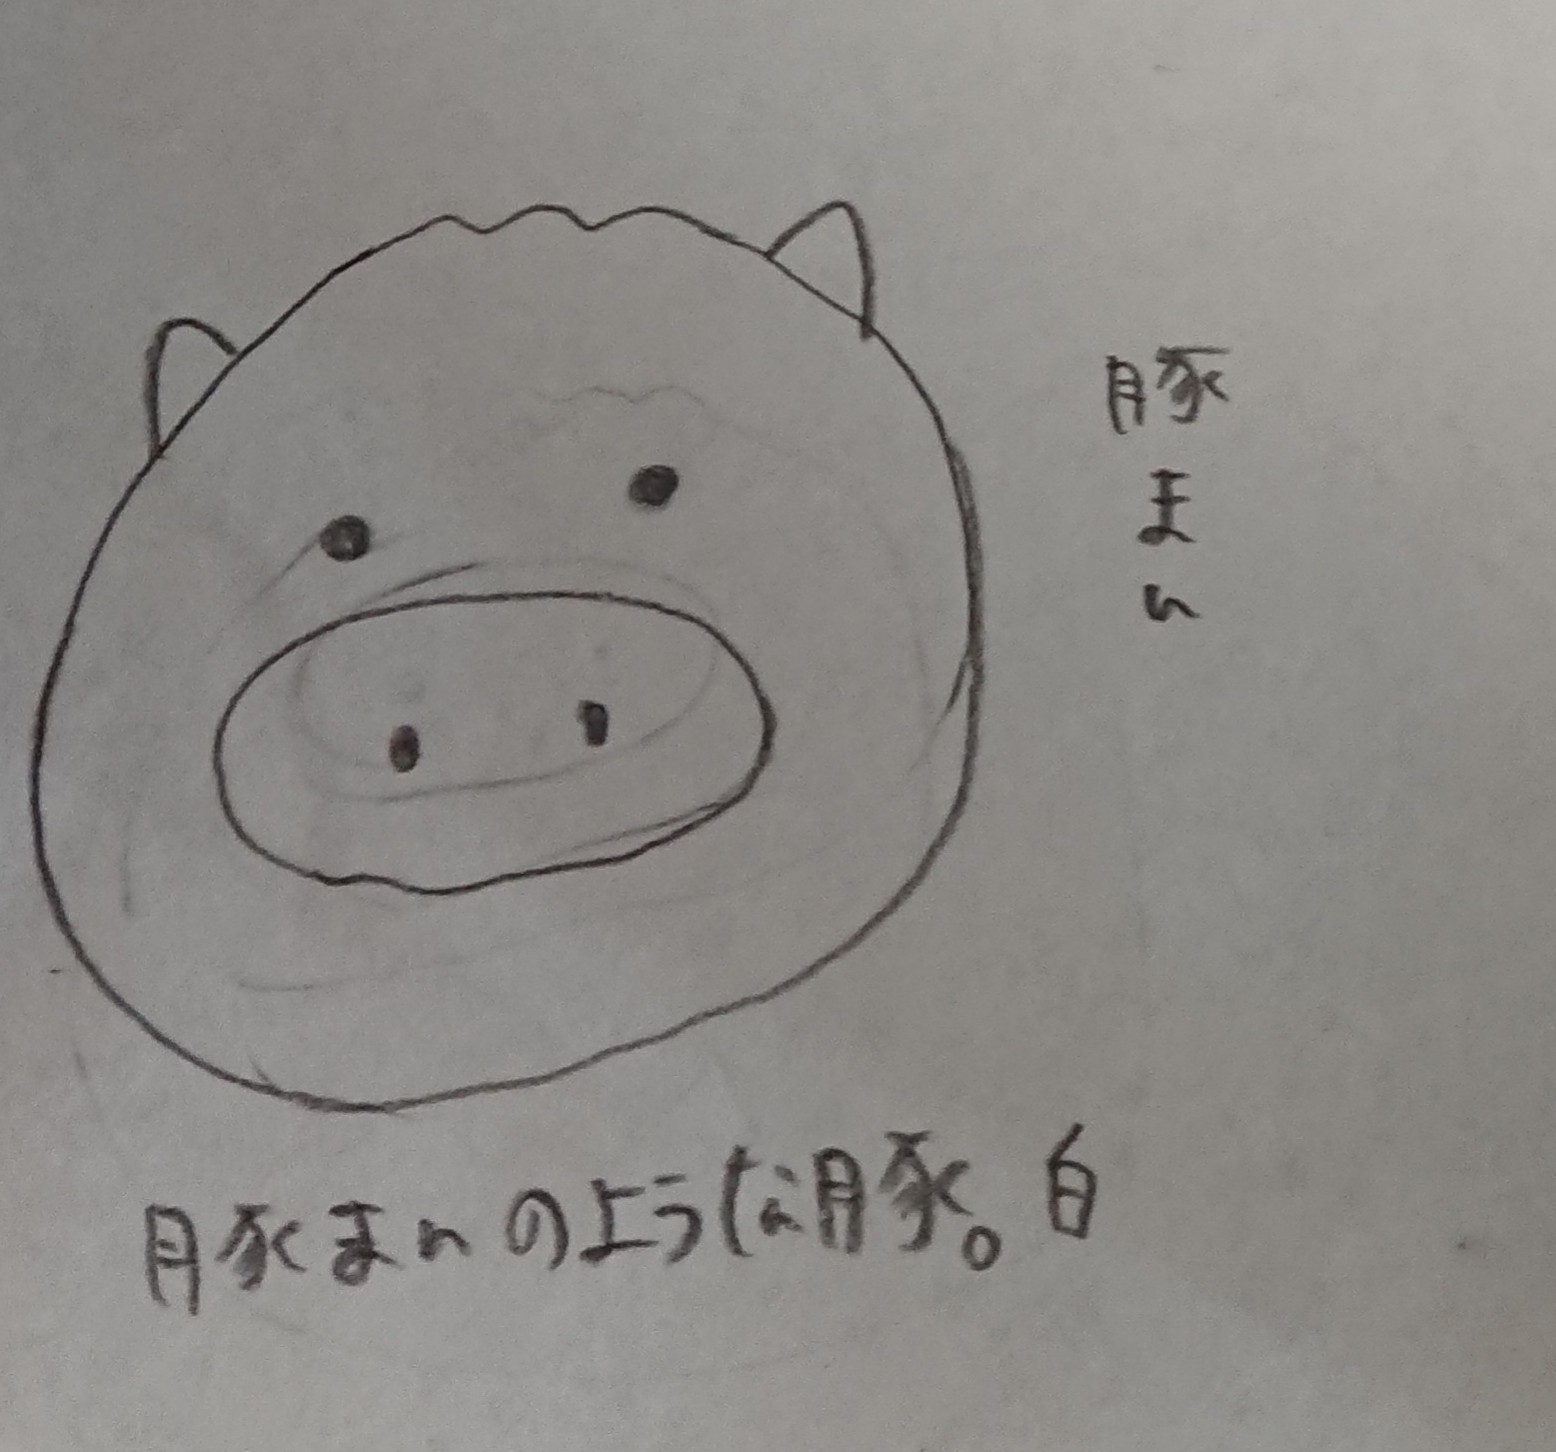 豚まん
豚まんのような豚。白